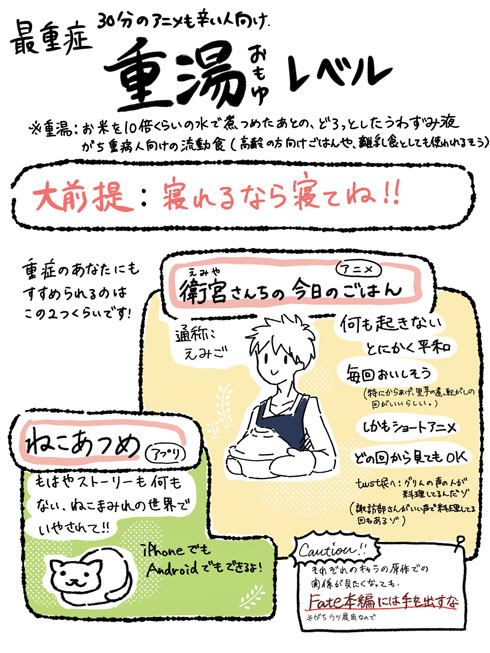 最重症
30分のアニメも辛い人向け.
重湯 レベル
おもゆ
※重湯:お米を10倍くらいの水で煮つめたあとの、どろっとしたうわずみ液
がち重病人向けの流動食(高齢の方向けごはんや、離乳食としても使われるそう)
大前提:寝れるなら寝てね!!
重症のあなたにも
すすめられるのは
この2つくらいです!
アニメ
えみや
衛宮さんちの今日のごはん
通称:
えみご
何も起きない
とにかく平和
毎回おいしそう
(特にからあげ、里芋の煮っ転がしの
回がいいらしい。)
しかもショートアニメ
どの回から見てもOK
twst民へ:グリムの声の人が
料理してるんだゾ
(諏訪部さんがいい声で料理してる
回もあるゾ)
ねこあつめ
アプリ
もはやストーリーも何も
ない、ねこまみれの世界で
いやされて!!
iPhoneでも
Androidでもできるよ!
Caution!!
それぞれのキャラの原作での
関係が見たくなっても、
Fate本編には手を出すな
※がちウツ展開なので